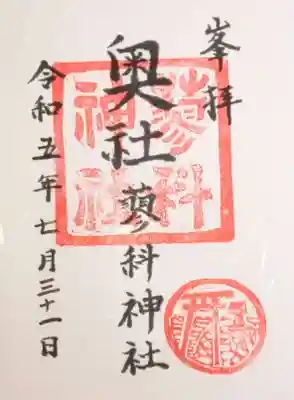 峯拝
奥社 蓼科神社
令和五年七月三十一日
蓼科
神社